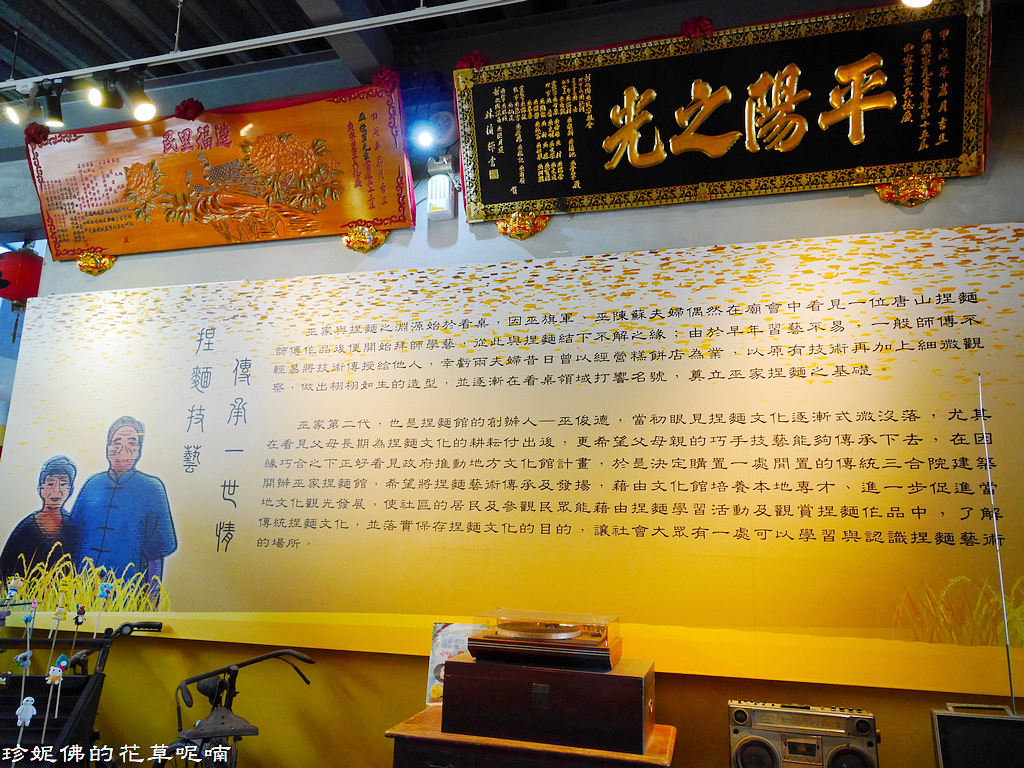 造福里民
平陽之光
甲戌年葭月吉立
林 敬書
賀
捏麵技藝
傳承一世情
巫家與捏麵之淵源始於看桌，因巫旗軍、巫陳蘇夫婦偶然在廟會中看見一位唐山捏麵
師傅作品後便開始拜師學藝，從此與捏麵結下不解之緣；由於早年習藝不易，一般師傅不
輕易將技術傳授給他人，幸虧兩夫婦昔日曾以經營糕餅店為業，以原有技術再加上細微觀
察，做出栩栩如生的造型，並逐漸在看桌領域打響名號，奠立巫家捏麵之基礎。
巫家第二代，也是捏麵館的創辦人—巫俊德，當初眼見捏麵文化逐漸式微沒落，尤其
在看見父母長期為捏麵文化的耕耘付出後，更希望父母親的巧手技藝能夠傳承下去，在因
緣巧合之下正好看見政府推動地方文化館計畫，於是決定購置一處閒置的傳統三合院建築
開辦巫家捏麵館，希望將捏麵藝術傳承及發揚，藉由文化館培養本地專才，進一步促進當
地文化觀光發展，使社區的居民及參觀民眾能藉由捏麵學習活動及觀賞捏麵作品中，了解
傳統捏麵文化，並落實保存捏麵文化的目的，讓社會大眾有一處可以學習與認識捏麵藝術
的場所。
珍妮佛的花草呢喃